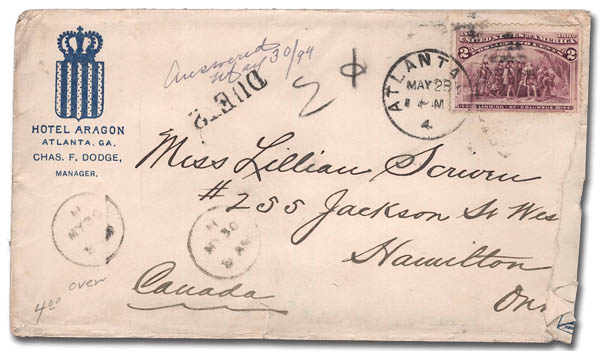 HOTEL ARAGON
ATLANTA. GA.
CHAS. F. DODGE,
MANAGER.
Answered
May 30/94
DUE 2
2
ATLANTA
MAY 28
4
UNITED STATES OF AMERICA
2 2
LANDING OF COLUMBUS
Miss Lillian Scriven
#255 Jackson St Wes
Hamilton
Canada Ont
MY 30
MY 30
8 AM
over
4.00